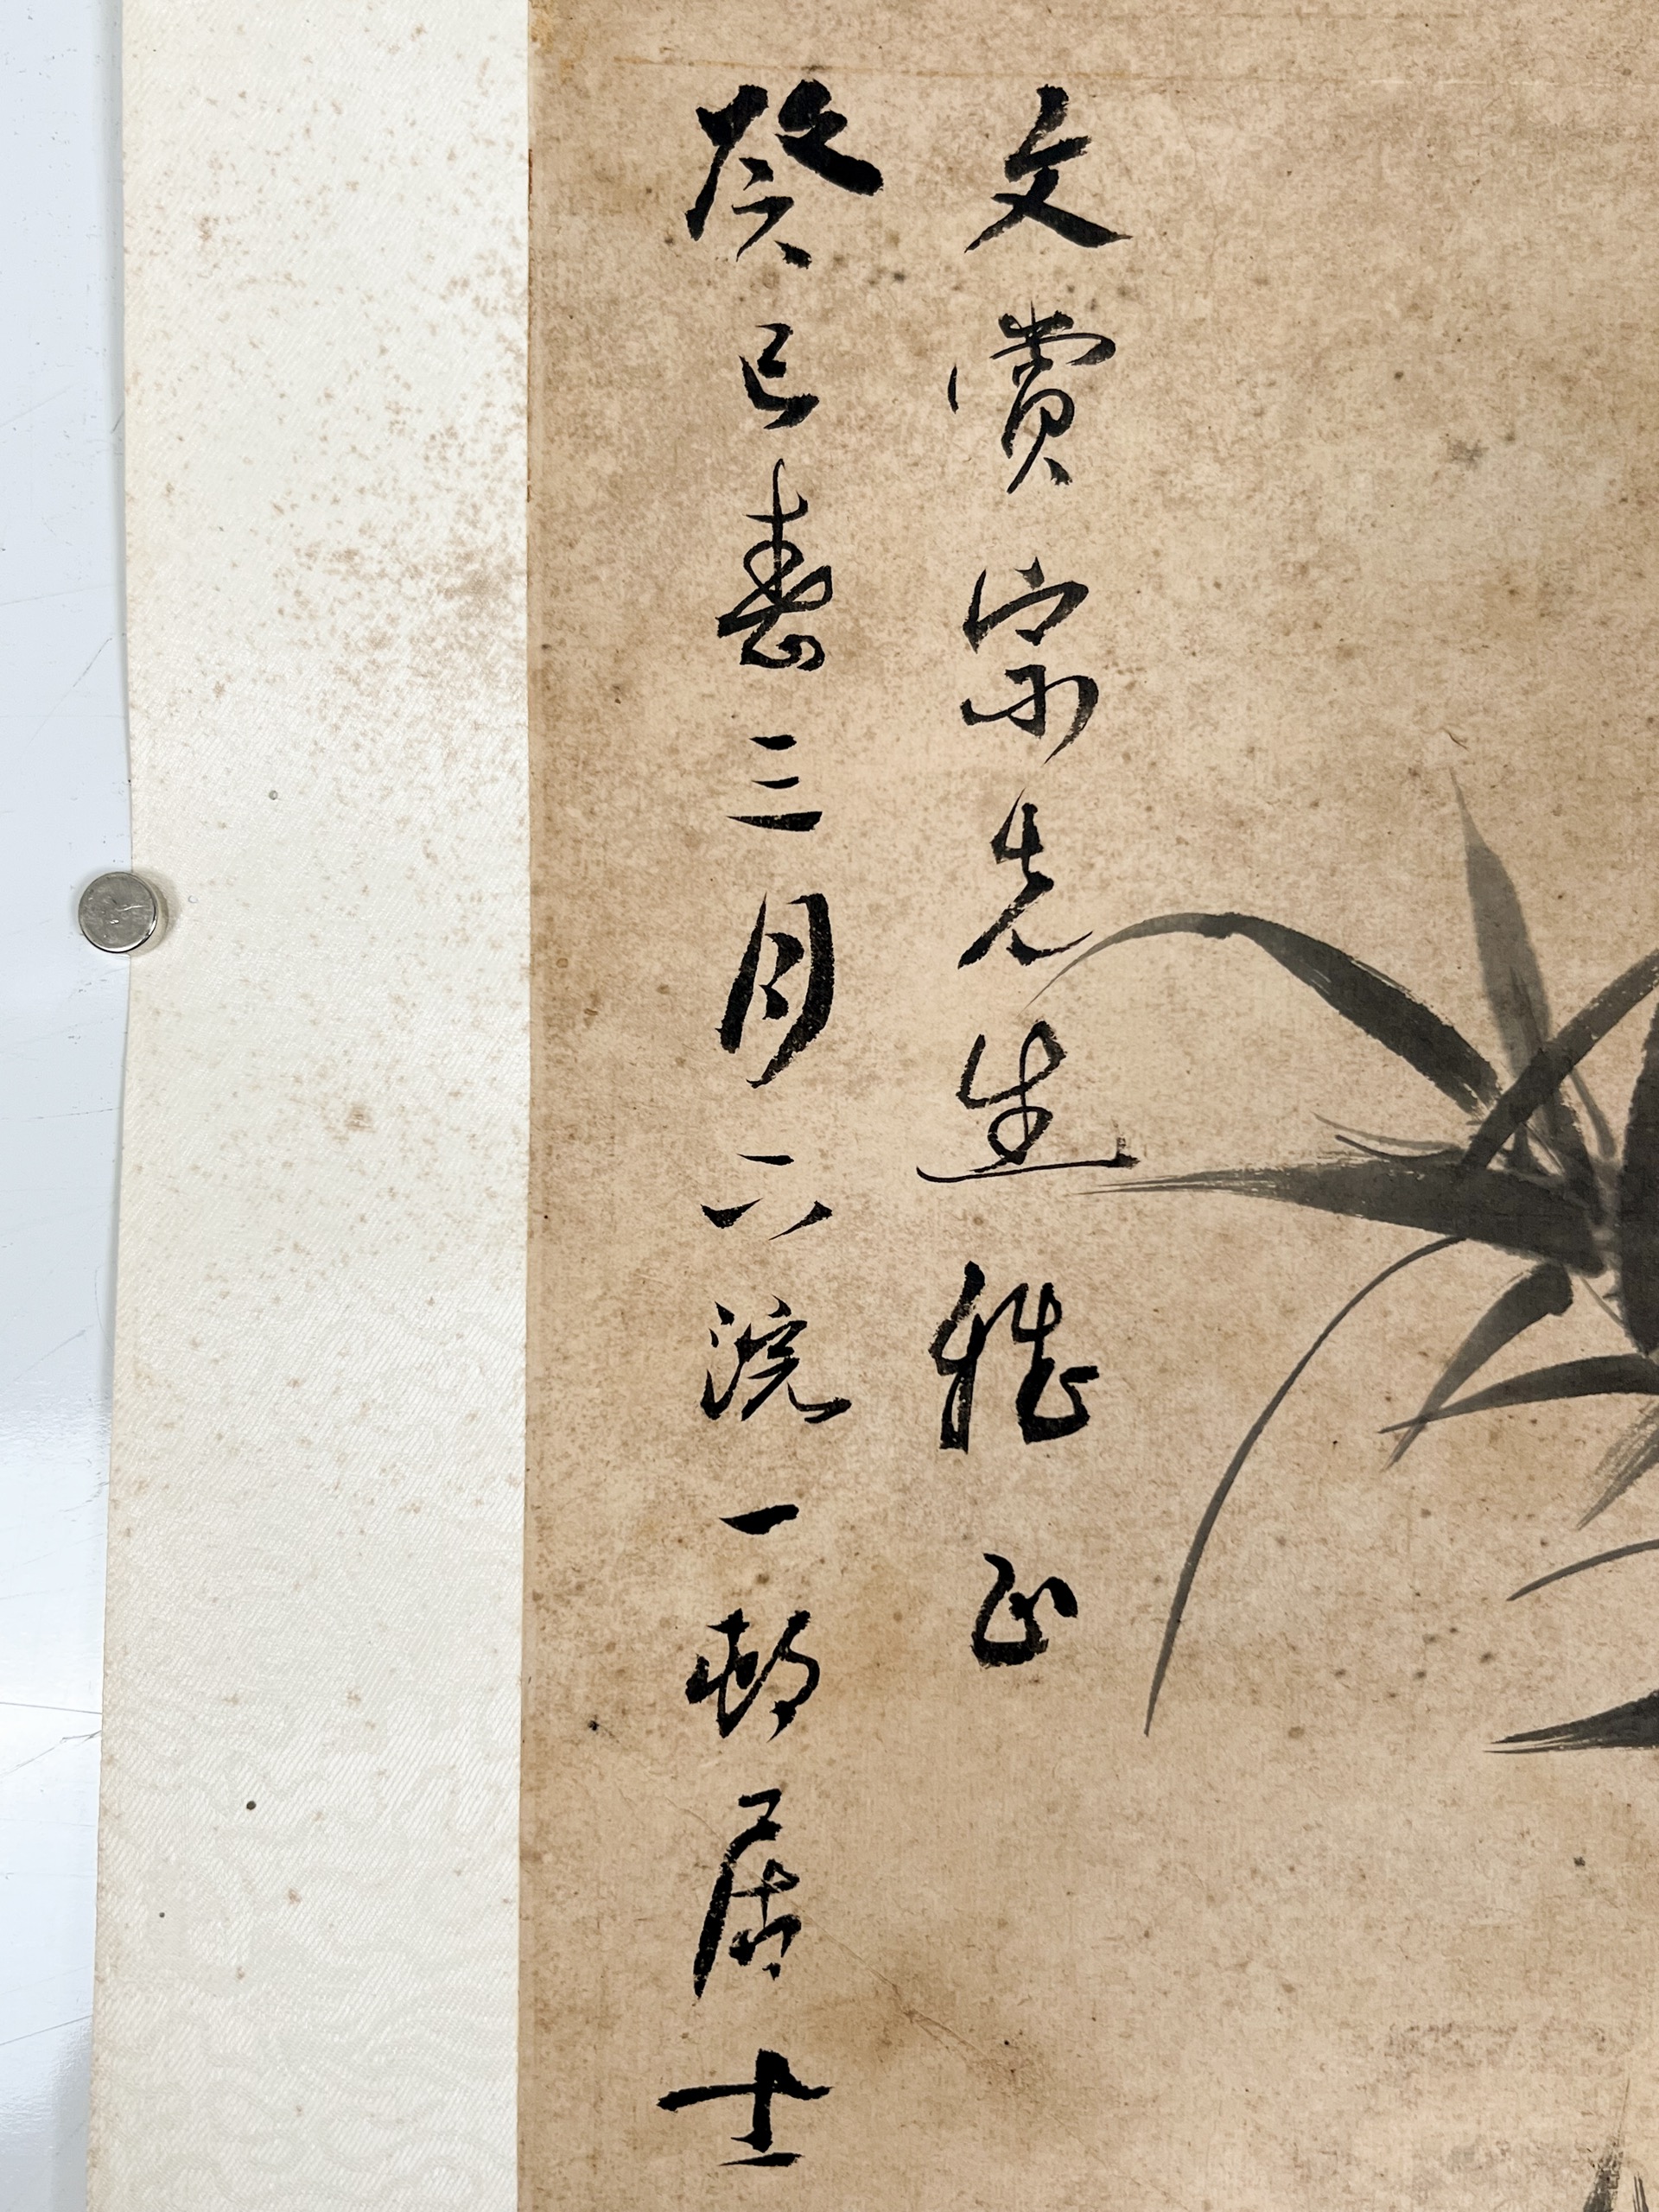 文賞宗先生雅正
癸巳春三月六浣一邨居士